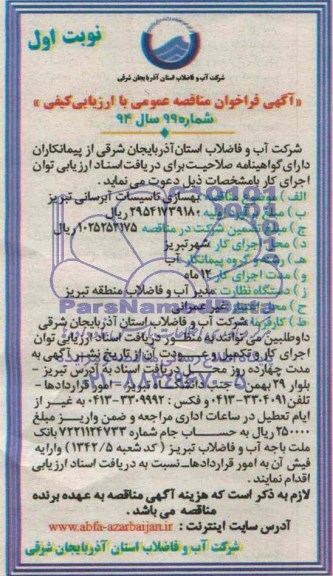 نوبت اول
شرکت آب و فاضلاب استان آذربایجان شرقی
«آگهی فراخوان مناقصه عمومی با ارزیابی کیفی»
شماره ۹۹ سال ۹۴
شرکت آب و فاضلاب استان آذربایجان شرقی از پیمانکاران
دارای گواهینامه صلاحیت برای دریافت اسناد ارزیابی توان
اجرای کار بامشخصات ذیل دعوت می نماید.
الف) موضوع مناقصه بهسازی تاسیسات آبرسانی تبریز
ب) مبلغ اولیه ۲۹۵۴۱۷۳۹۱۸۰ ریال
ج) مبلغ تضمین شرکت در مناقصه ۱۰۲۵۲۵۲۱۷۵ ریال
د) محل اجرای کار شهر تبریز
هـ) رشته و گروه پیمانکار آب
و) مدت اجرای کار ۱۲ ماه
ز) دستگاه نظارت مدیر آب و فاضلاب منطقه تبریز
ح) محل اعتبار غیر عمرانی
ط) کارفرما شرکت آب و فاضلاب استان آذربایجان شرقی
داوطلبین می توانند به منظور دریافت اسناد ارزیابی توان
اجرای کار و تکمیل و عودت آن از تاریخ نشر آگهی به
مدت چهارده روز محل دریافت اسناد به آدرس تبریز -
بلوار ۲۹ بهمن - جنب دانشگاه امور قراردادها -
تلفن ۳۳۰۴۰۹۱-۰۴۱۳ و فکس: ۳۳۰۹۹۹۲-۰۴۱۳ به غیر از
ایام تعطیل در ساعات اداری مراجعه و ضمن واریز مبلغ
۲۵۰۰۰۰ ریال به حساب جام شماره ۷۲۲۱۱۲۴۷۳۳ بانک
ملت باجه آب و فاضلاب تبریز (کد شعبه ۱۳۴۲/۵) وارایه
فیش آن به امور قراردادها نسبت به دریافت اسناد ارزیابی
اقدام نمایند.
لازم به ذکر است که هزینه آگهی مناقصه به عهده برنده
مناقصه می باشد.
آدرس سایت اینترنت: www.abfa-azarbaijan.ir
شرکت آب و فاضلاب استان آذربایجان شرقی
ParsNamadData